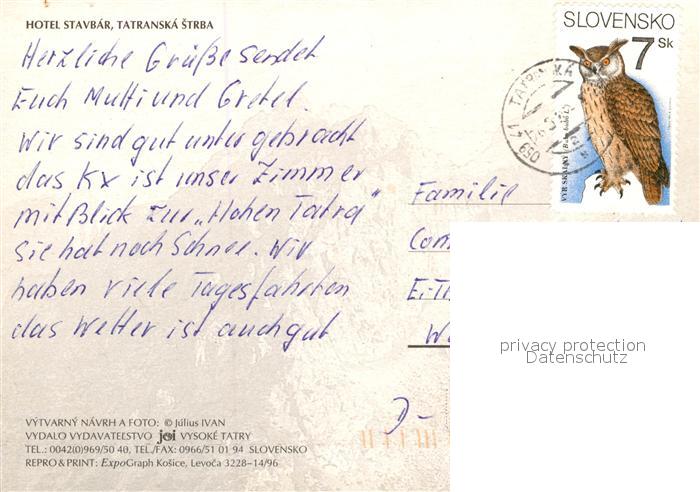 HOTEL STAVBÁR, TATRANSKÁ ŠTRBA
Herzliche Grüße sendet
Euch Mutti und Gretel.
Wir sind gut untergebracht
das Kx ist unser Zimmer
mit Blick zur „Hohen Tatra"
sie hat noch Schnee. Wir
haben viele Tagesfahrten
das Wetter ist auch gut
VÝTVARNÝ NÁVRH A FOTO: © Július IVAN
VYDALO VYDAVATEĽSTVO joi VYSOKÉ TATRY
TEL.: 0042(0)969/50 40, TEL./FAX: 0966/51 01 94 SLOVENSKO
REPRO & PRINT: ExpoGraph Košice, Levoča 3228–14/96
SLOVENSKO
7 Sk
059 41
Familie
D-
privacy protection
Datenschutz